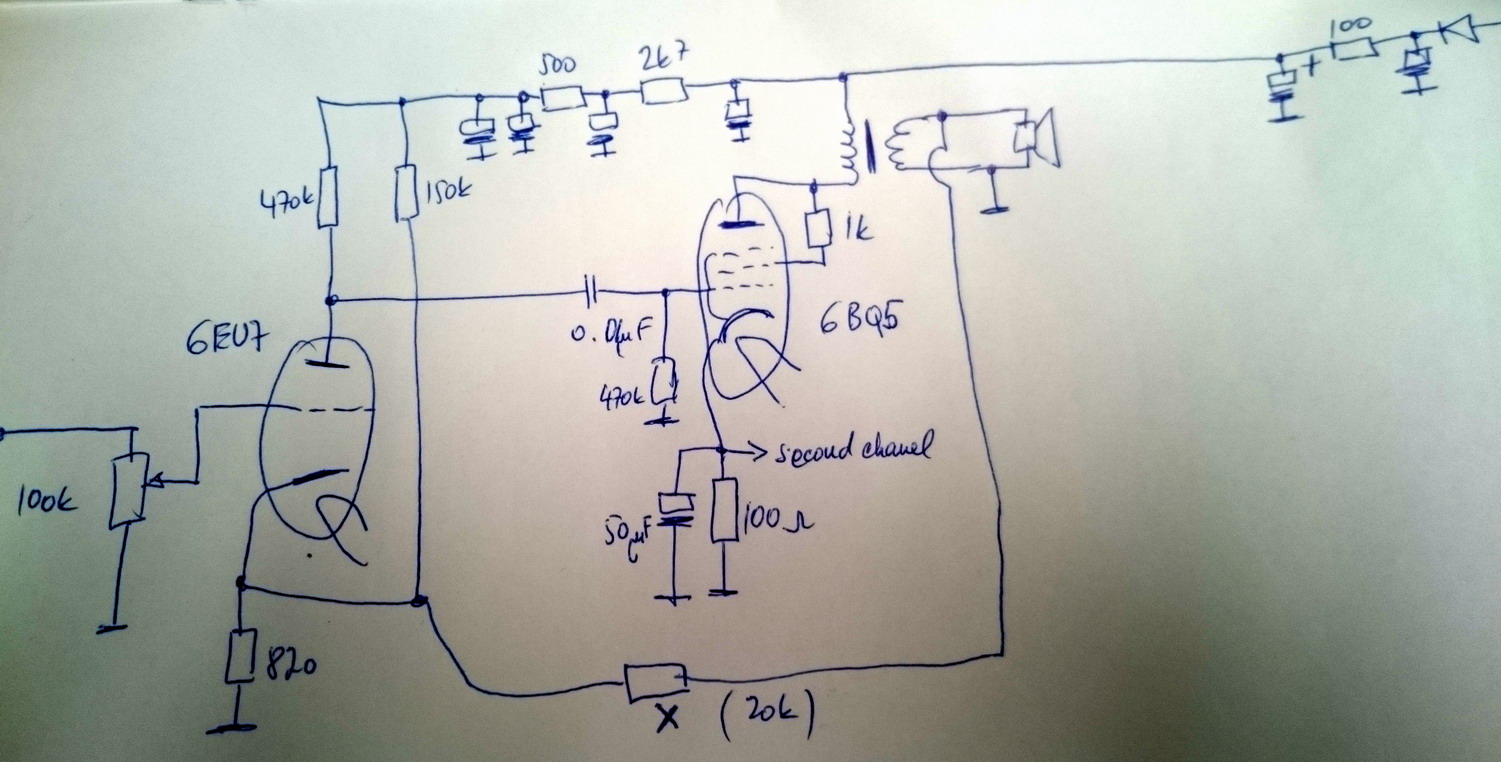 100
500
2k7
470k
150k
1k
6EU7
0.01µF
6BQ5
470k
100k
second chanel
50µF
100Ω
820
X (20k)
+